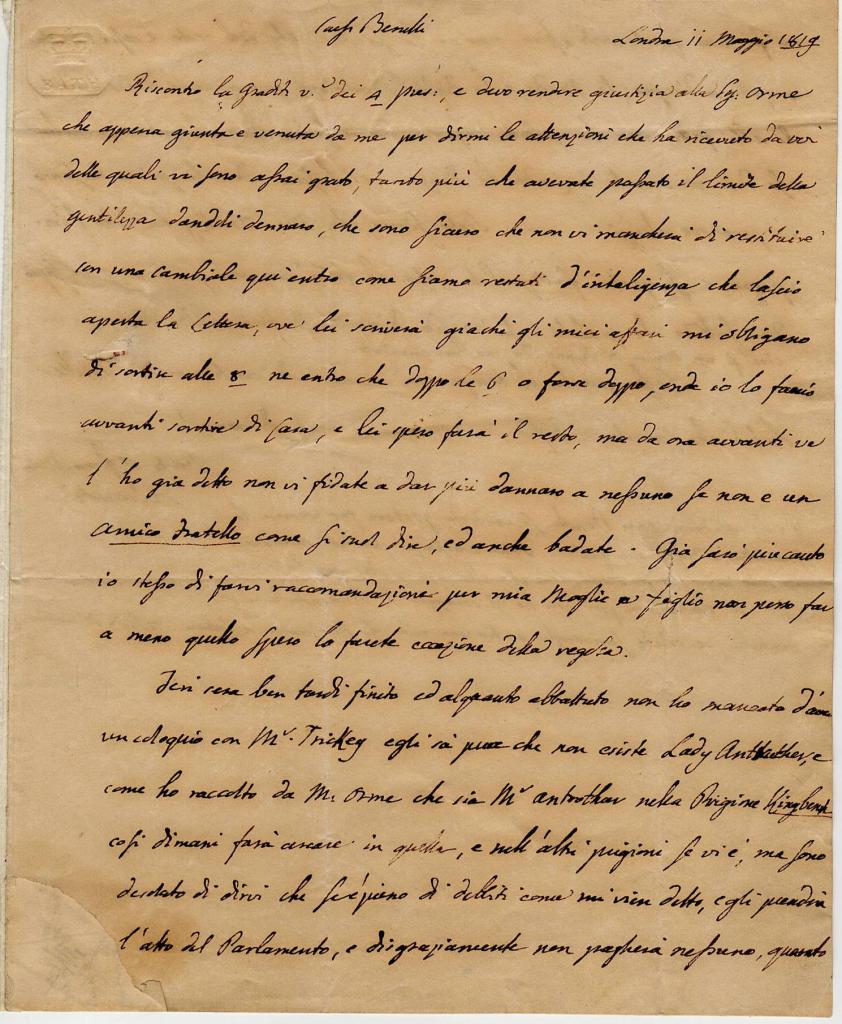 Benelli
Londra 11 Maggio 1819
Riscontro la Gradit. v.ª dei 4 pres:, e devo rendere giustizia alla Sig: Orme
che appena giunta e venuta da me per dirmi le attenzioni che ha ricevuto da voi
delle quali vi sono assai grato, tanto più che avevate passato il limite della
gentilezza dandoli dennaro, che sono sicuro che non vi mancherà di restituire
con una cambiale qui entro come siamo restati d'inteligenza che lascio
aperta la Lettera, ove lei scriverà giachè gli miei affari mi obligano
di sortire alle 8 ne entro che doppo le 6 o forse doppo, onde io lo faccio
avvanti sortire di Casa, e lei spero farà il resto, ma da ora avvanti ve
l'ho gia detto non vi fidate a dar più dannaro a nessuno se non e un
amico fratello come si suol dire, ed anche badate. Gia sarò più cauto
io stesso di farvi raccomandazioni per mia Moglie e figlio non posso far
a meno quello spero lo farete eccezione della regola.
Jeri sera ben tardi finito ed alquanto abbattuto non ho mancato d'
un coloquio con Mr. Trickey egli sà pure che non esiste Lady, e
come ho raccolto da M. Orme che sia Mr antrothar nella Prigione Kingbench
così dimani farà cercare in quella, e nell'altri prigioni se vi è, ma sono
desolato di dirvi che se è pieno di debiti come mi vien detto, egli prenderà
l'atto del Parlamento, e disgraziamente non pagherà nessuno, quanto